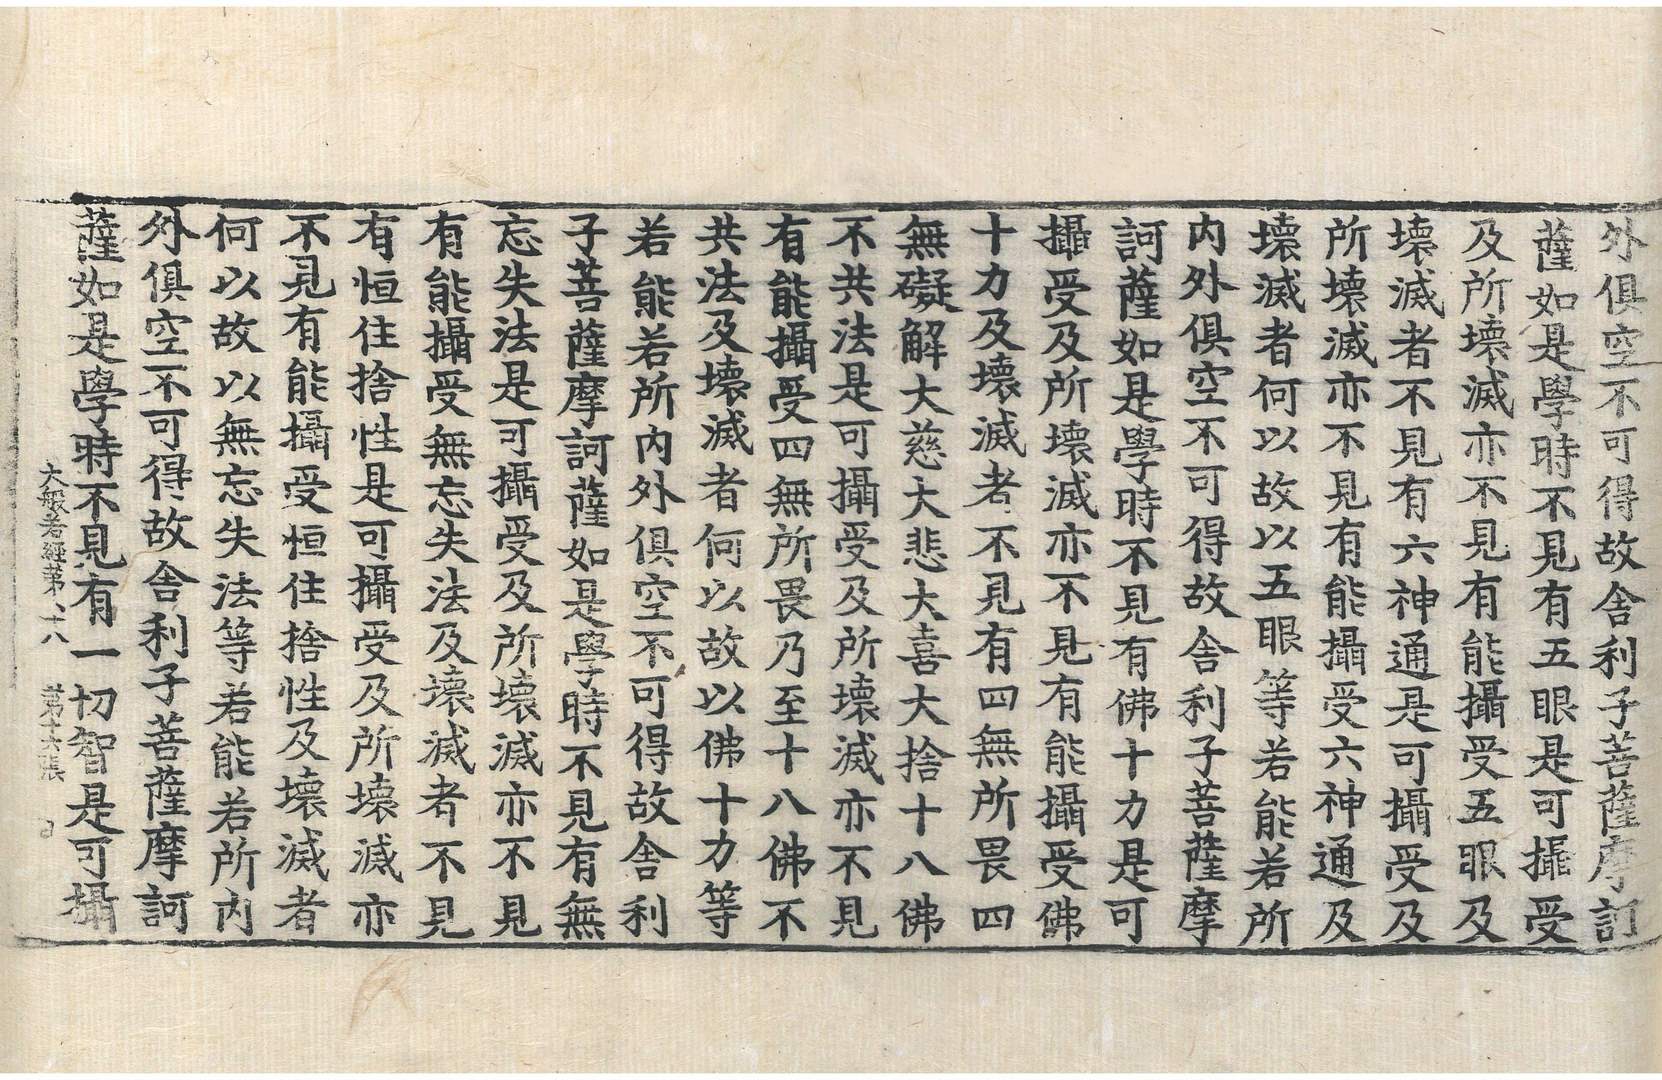 外俱空不可得故舍利子菩薩摩訶
薩如是學時不見有五眼是可攝受
及所壞滅亦不見有能攝受五眼及
壞滅者不見有六神通是可攝受及
所壞滅亦不見有能攝受六神通及
壞滅者何以故以五眼等若能若所
內外俱空不可得故舍利子菩薩摩
訶薩如是學時不見有佛十力是可
攝受及所壞滅亦不見有能攝受佛
十力及壞滅者不見有四無所畏四
無礙解大慈大悲大喜大捨十八佛
不共法是可攝受及所壞滅亦不見
有能攝受四無所畏乃至十八佛不
共法及壞滅者何以故以佛十力等
若能若所內外俱空不可得故舍利
子菩薩摩訶薩如是學時不見有無
忘失法是可攝受及所壞滅亦不見
有能攝受無忘失法及壞滅者不見
有恒住捨性是可攝受及所壞滅亦
不見有能攝受恒住捨性及壞滅者
何以故以無忘失法等若能若所內
外俱空不可得故舍利子菩薩摩訶
薩如是學時不見有一切智是可攝
大般若經苐八十八 苐十六張